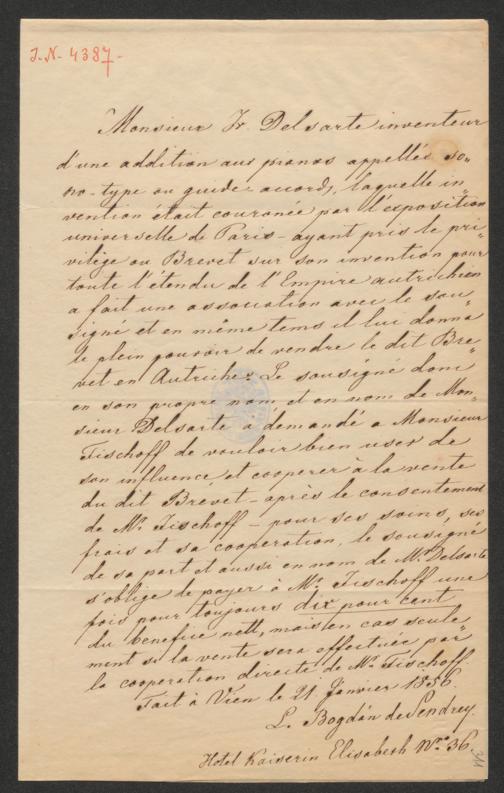 I.N. 4387.
Monsieur Fr. Delsarte inventeur
d'une addition aus pianos appellés so„
no-type ou guide-accords, laquelle in„
vention était couronée par l'exposition
universelle de Paris – ayant pris le pri„
vilège ou Brevet sur son invention pour
toute l'étendu de l'Empire autrichien
a fait une association avec le sou„
signé et en même tems il lui donna
le plein pouvoir de vendre le dit Bre„
vet en Autriche. Le sousigné donc
en son propre nom, et en nom de Mon„
sieur Delsarte a demandé a Monsieur
Fischoff de vouloir bien user de
son influence, et cooperer à la vente
du dit Brevet – après le consentement
de Mr. Fischoff – pour ses soins, ses
frais et sa cooperation, le sousigné
de sa part et aussi en nom de Mr. Delsarte
s'oblige de payer à Mr. Fischoff une
fois pour toujours dix pour cent
du benefice nett, mais en cas seule„
ment si la vente sera effectuée par
la cooperation directe de Mr. Fischoff.
Fait à Vien le 21 Janvier 1856
L. Bogdán de Sendrey.
Hotel Kaiserin Elisabeth Nro. 36.